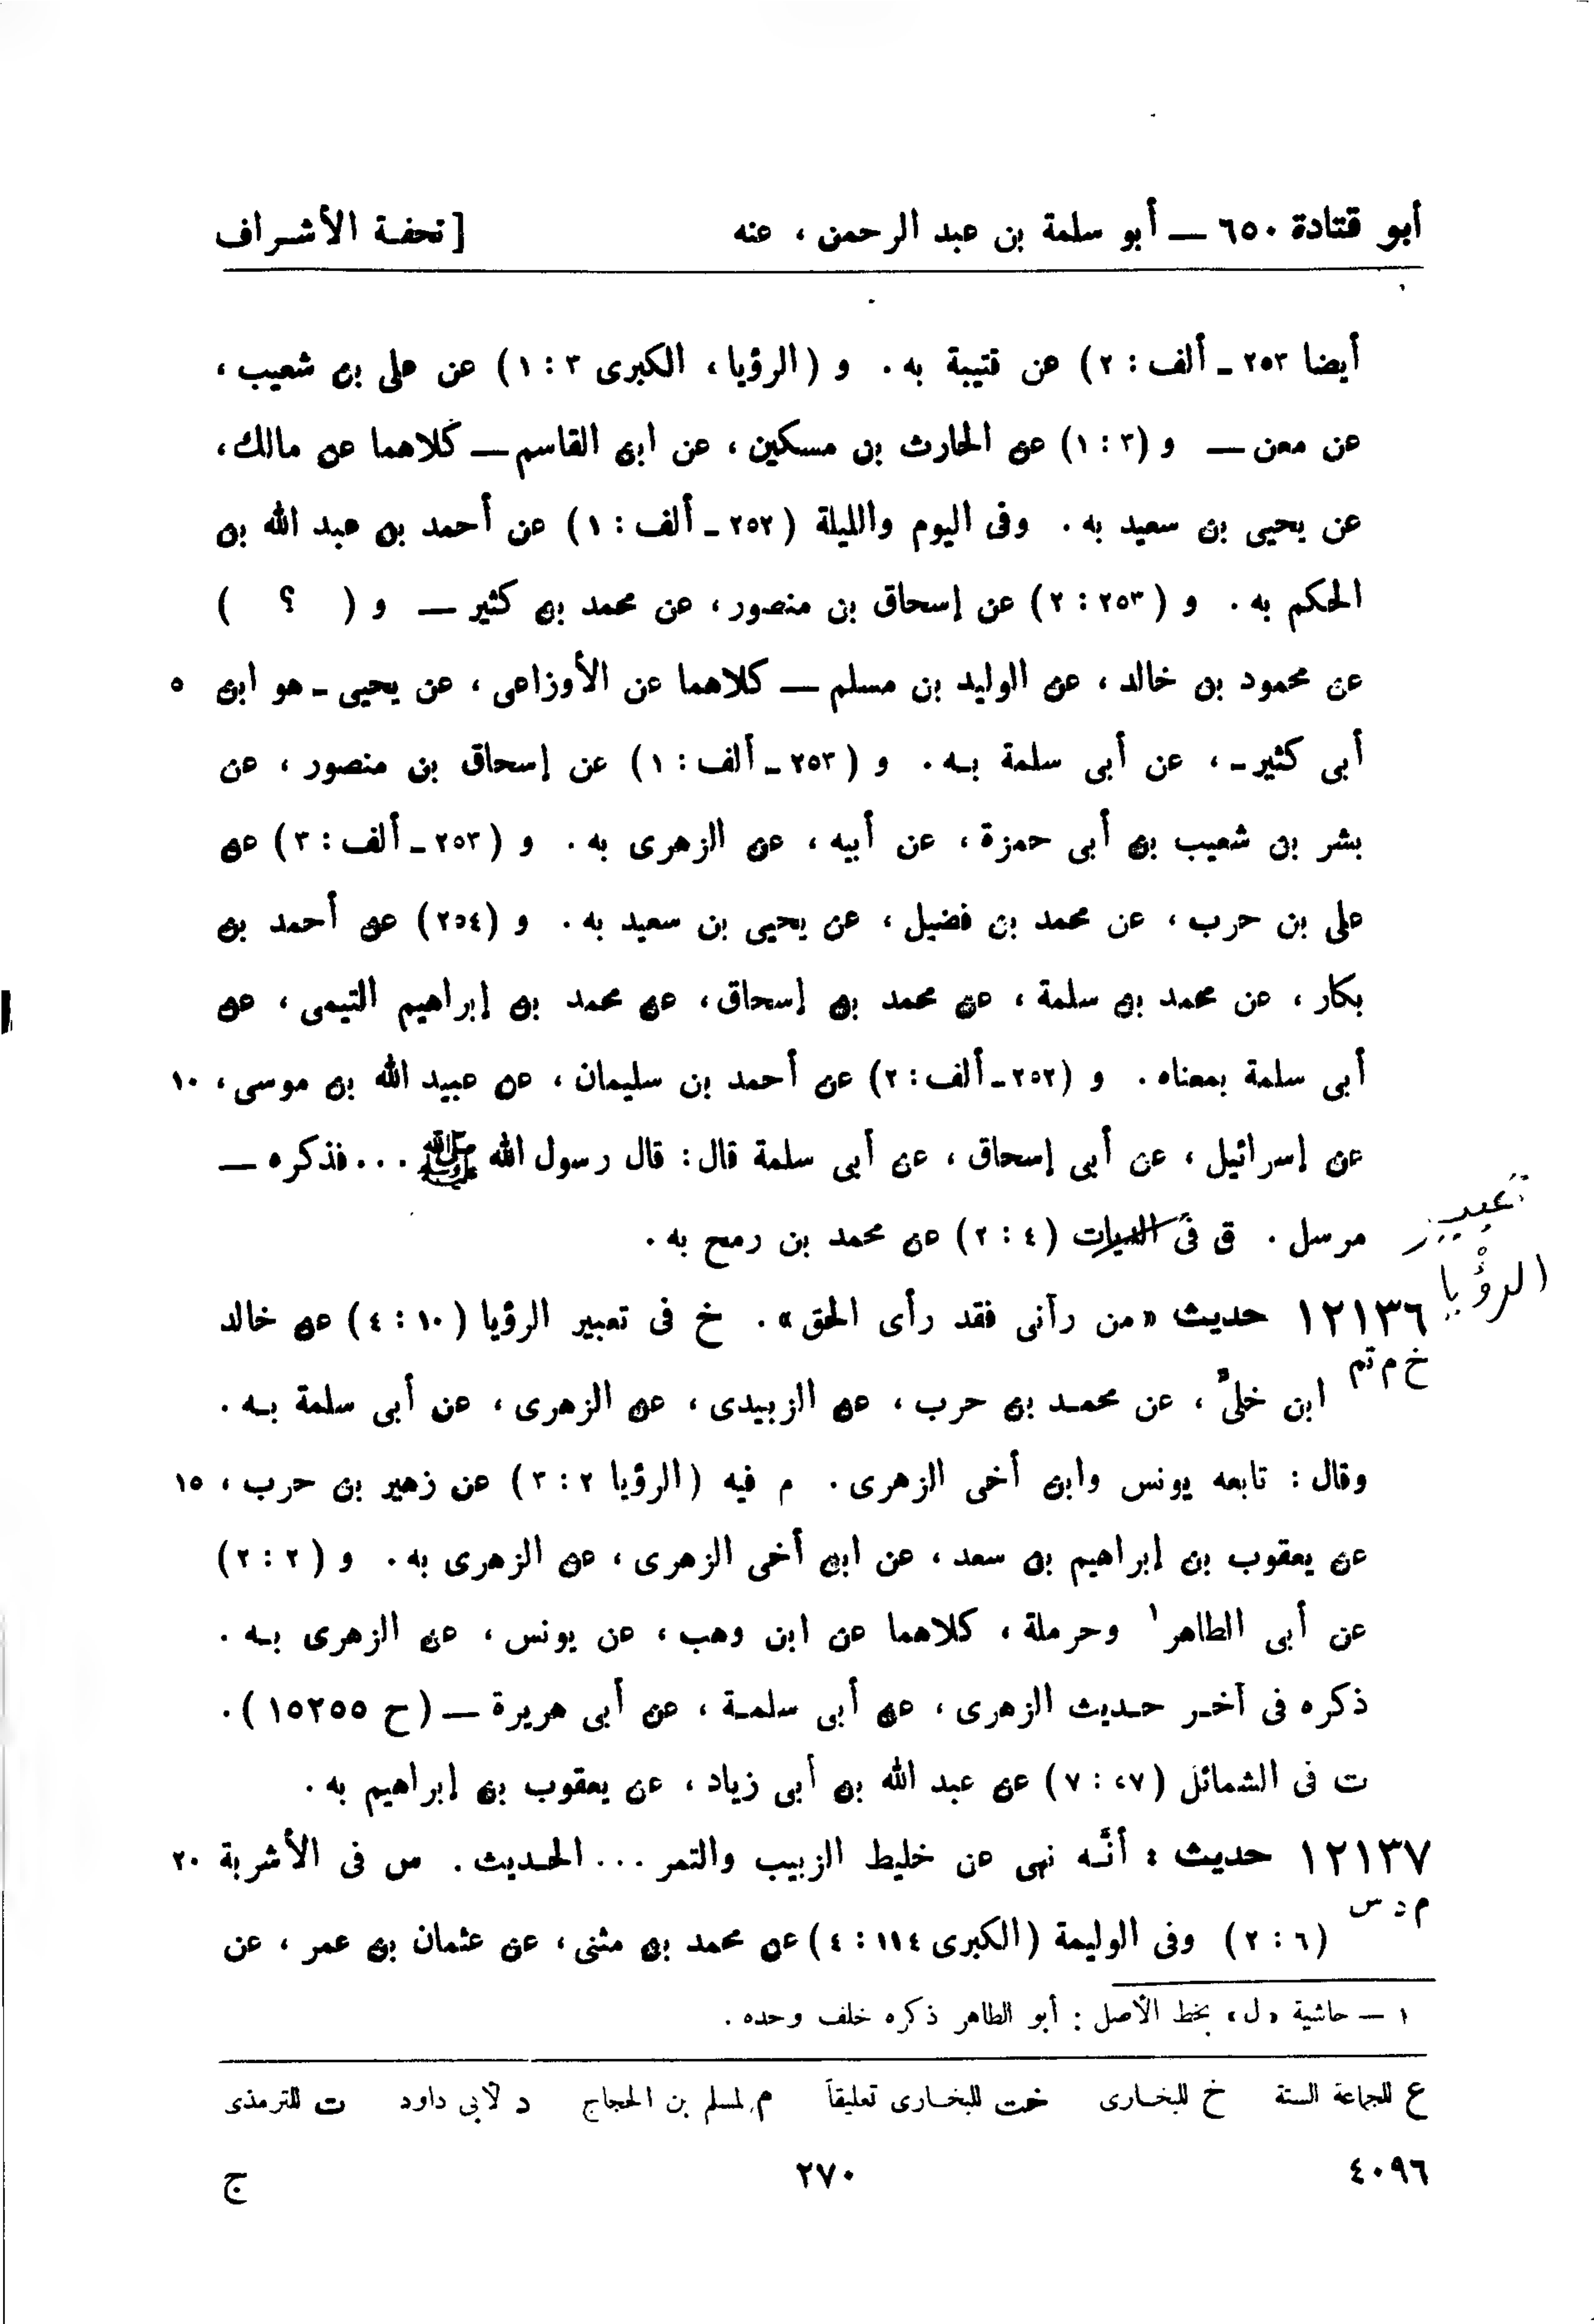 أبو قتادة ٦٥٠ — أبو سلمة بن عبد الرحمن ، عنه [ تحفة الأشراف
أيضا ٢٥٣ - ألف : ٢) عن قتيبة به . و ( الرؤيا ، الكبرى ٣ : ١) عن على بن شعيب ،
عن معن — و (٣ : ١) عن الحارث بن مسكين ، عن ابن القاسم — كلاهما عن مالك ،
عن يحيى بن سعيد به . وفى اليوم والليلة ( ٢٥٢ - ألف : ١) عن أحمد بن عبد الله بن
الحكم به . و ( ٢٥٣ : ٢) عن إسحاق بن منصور ، عن محمد بن كثير — و ( ؟ )
عن محمود بن خالد ، عن الوليد بن مسلم — كلاهما عن الأوزاعى ، عن يحيى - هو ابن ٥
أبى كثير - ، عن أبى سلمة بـه . و ( ٢٥٣ - ألف : ١) عن إسحاق بن منصور ، عن
بشر بن شعيب بن أبى حمزة ، عن أبيه ، عن الزهرى به . و ( ٢٥٣ - ألف : ٣) عن
على بن حرب ، عن محمد بن فضيل ، عن يحيى بن سعيد به . و (٢٥٤) عن أحمد بن
بكار ، عن محمد بن سلمة ، عن محمد بن إسحاق ، عن محمد بن إبراهيم التيمى ، عن
أبى سلمة بمعناه . و (٢٥٢ - ألف : ٢) عن أحمد بن سليمان ، عن عبيد الله بن موسى ، ١٠
عن إسرائيل ، عن أبى إسحاق ، عن أبى سلمة قال : قال رسول الله ﷺ ... فذكره —
تعبير
مرسل . ق فى الديات (٤ : ٢) عن محمد بن رمح به .
الرؤيا
١٢١٣٦ حديث « من رآنى فقد رأى الحق » . خ فى تعبير الرؤيا ( ١٠ : ٤) عن خالد
خ م تم
ابن خلىّ ، عن محمـد بن حرب ، عن الزبيدى ، عن الزهرى ، عن أبى سلمة بـه .
وقال : تابعه يونس وابن أخى الزهرى . م فيه (الرؤيا ٢ : ٣) عن زهير بن حرب ، ١٥
عن يعقوب بن إبراهيم بن سعد ، عن ابن أخى الزهرى ، عن الزهرى به . و (٢ : ٢)
عن أبى الطاهر ١ وحرملة ، كلاهما عن ابن وهب ، عن يونس ، عن الزهرى بـه .
ذكره فى آخـر حـديث الزهرى ، عن أبى سلمـة ، عن أبى هريرة — (ح ١٥٢٥٥) .
ت فى الشمائل (٤٧ : ٧) عن عبد الله بن أبى زياد ، عن يعقوب بن إبراهيم به .
١٢١٣٧ حديث : أنّـه نهى عن خليط الزبيب والتمر ... الحـديث . س فى الأشربة ٢٠
م د س
(٦ : ٢) وفى الوليمة (الكبرى ١١٤ : ٤) عن محمد بن مثنى ، عن عثمان بن عمر ، عن
١ — حاشية «ل» بخط الأصل : أبو الطاهر ذكره خلف وحده .
ع للجماعة الستة خ للبخـارى خت للبخـارى تعليقاً م لمسلم بن الحجاج د لأبى داود ت للترمذى
٤٠٩٦ ٢٧٠ ج